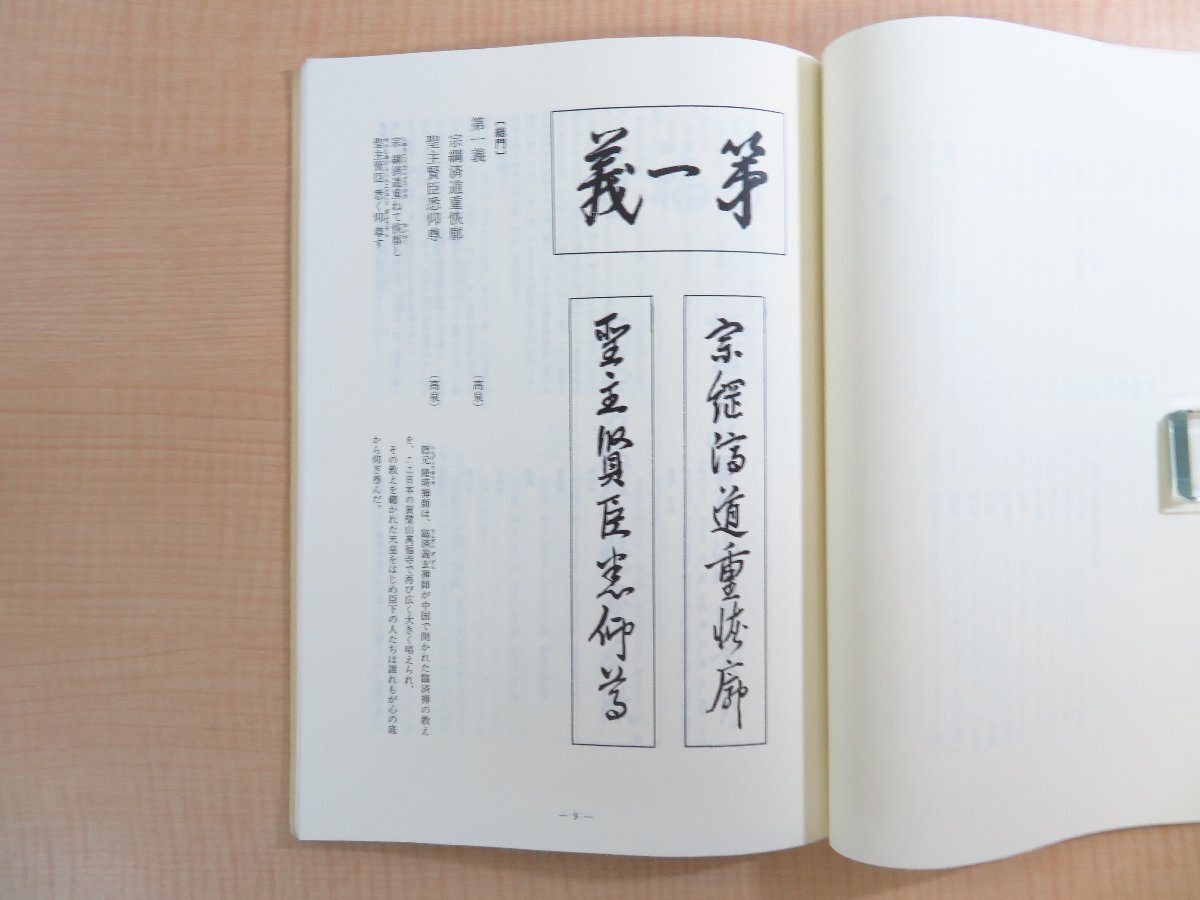 第一義
宗綱済道重恢廓
聖主賢臣悉仰尊
〔総門〕
第一義
（高泉）
宗綱済道重恢廓
聖主賢臣悉仰尊
（高泉）
宗綱済道重ねて恢廓し
聖主賢臣悉く仰尊す
隠元隆琦禅師は、臨済義玄禅師が中国で開かれた臨済禅の教え
を、ここ日本の黄檗山萬福寺で再び広く大きく唱えられ、
その教えを聴かれた天皇をはじめ臣下の人たちは誰れもが心の底
から仰ぎ尊んだ。
— 9 —